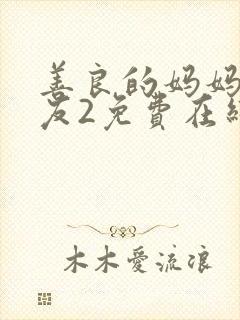 善良的妈妈
友2免費在
木木愛流浪